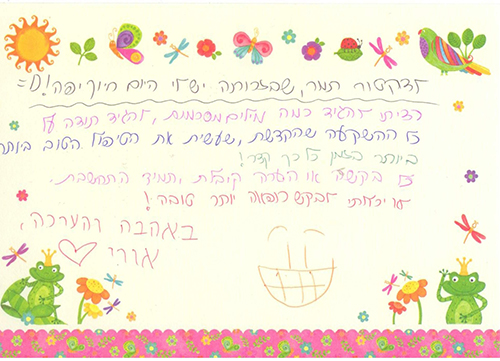 לדקטור תמר, שבזכותה יש לי היום חיוך יפה! D=
רציתי להגיד כמה מילים מסכמות, להגיד תודה על
כל ההשקעה שהקדשת, שעשית את הטיפול הטוב ביותר
ביותר בזמן כל כך קצר!
כל בקשה או הערה קיבלת, תמיד התחשבת.
לא יכולתי לבקש רופאה יותר טובה!
באהבה והערכה,
אורי